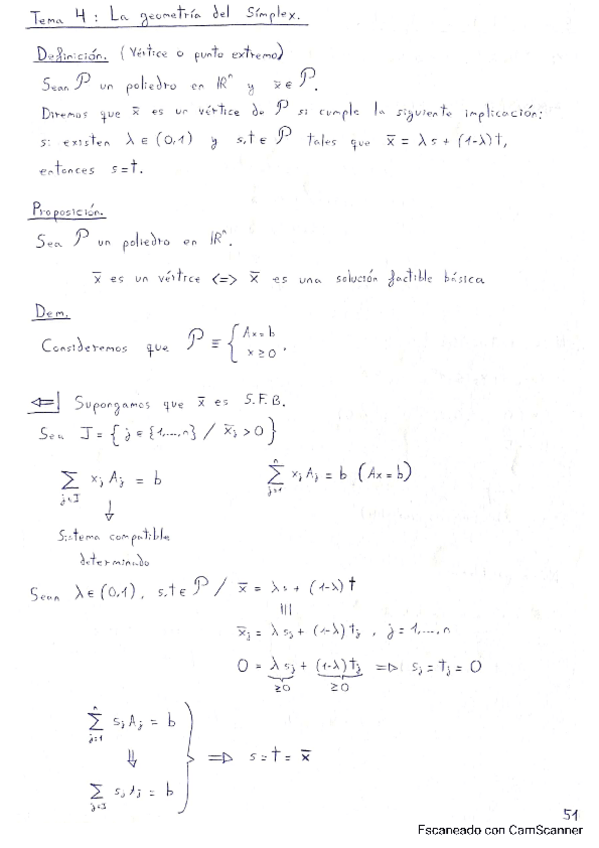 Tema 4: La geometría del Símplex.
Definición. (Vértice o punto extremo)
Sean P un poliedro en ℝⁿ y x̄ ∈ P.
Diremos que x̄ es un vértice de P si cumple la siguiente implicación:
si existen λ ∈ (0,1) y s,t ∈ P tales que x̄ = λs + (1-λ)t,
entonces s=t.
Proposición.
Sea P un poliedro en ℝⁿ.
x̄ es un vértice <=> x̄ es una solución factible básica
Dem.
Consideremos que P ≡ { Ax=b
x≥0 .
⇐| Supongamos que x̄ es S.F.B.
Sea J = { j ∈ {1,...,n} / x̄ⱼ > 0 }
∑_{j∈J} xⱼ Aⱼ = b    ∑_{j=1}^{n} xⱼ Aⱼ = b (Ax=b)
↓
Sistema compatible
determinado
Sean λ ∈ (0,1), s,t ∈ P / x̄ = λs + (1-λ) t
|||
x̄ⱼ = λsⱼ + (1-λ)tⱼ , j = 1,...,n
0 = λsⱼ + (1-λ)tⱼ => sⱼ = tⱼ = 0
≥0    ≥0
∑_{j=1}^{n} sⱼ Aⱼ = b
⇓    } => s = t = x̄
∑_{j∈J} sⱼ Aⱼ = b
51
Escaneado con CamScanner